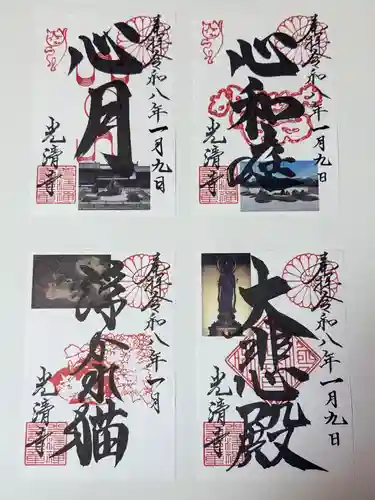 奉拝
令和八年一月九日
心月
光清寺
奉拝
令和八年一月九日
心和庭
光清寺
奉拝
令和八年一月
浮かれ猫
光清寺
奉拝
令和八年一月九日
大悲殿
光清寺